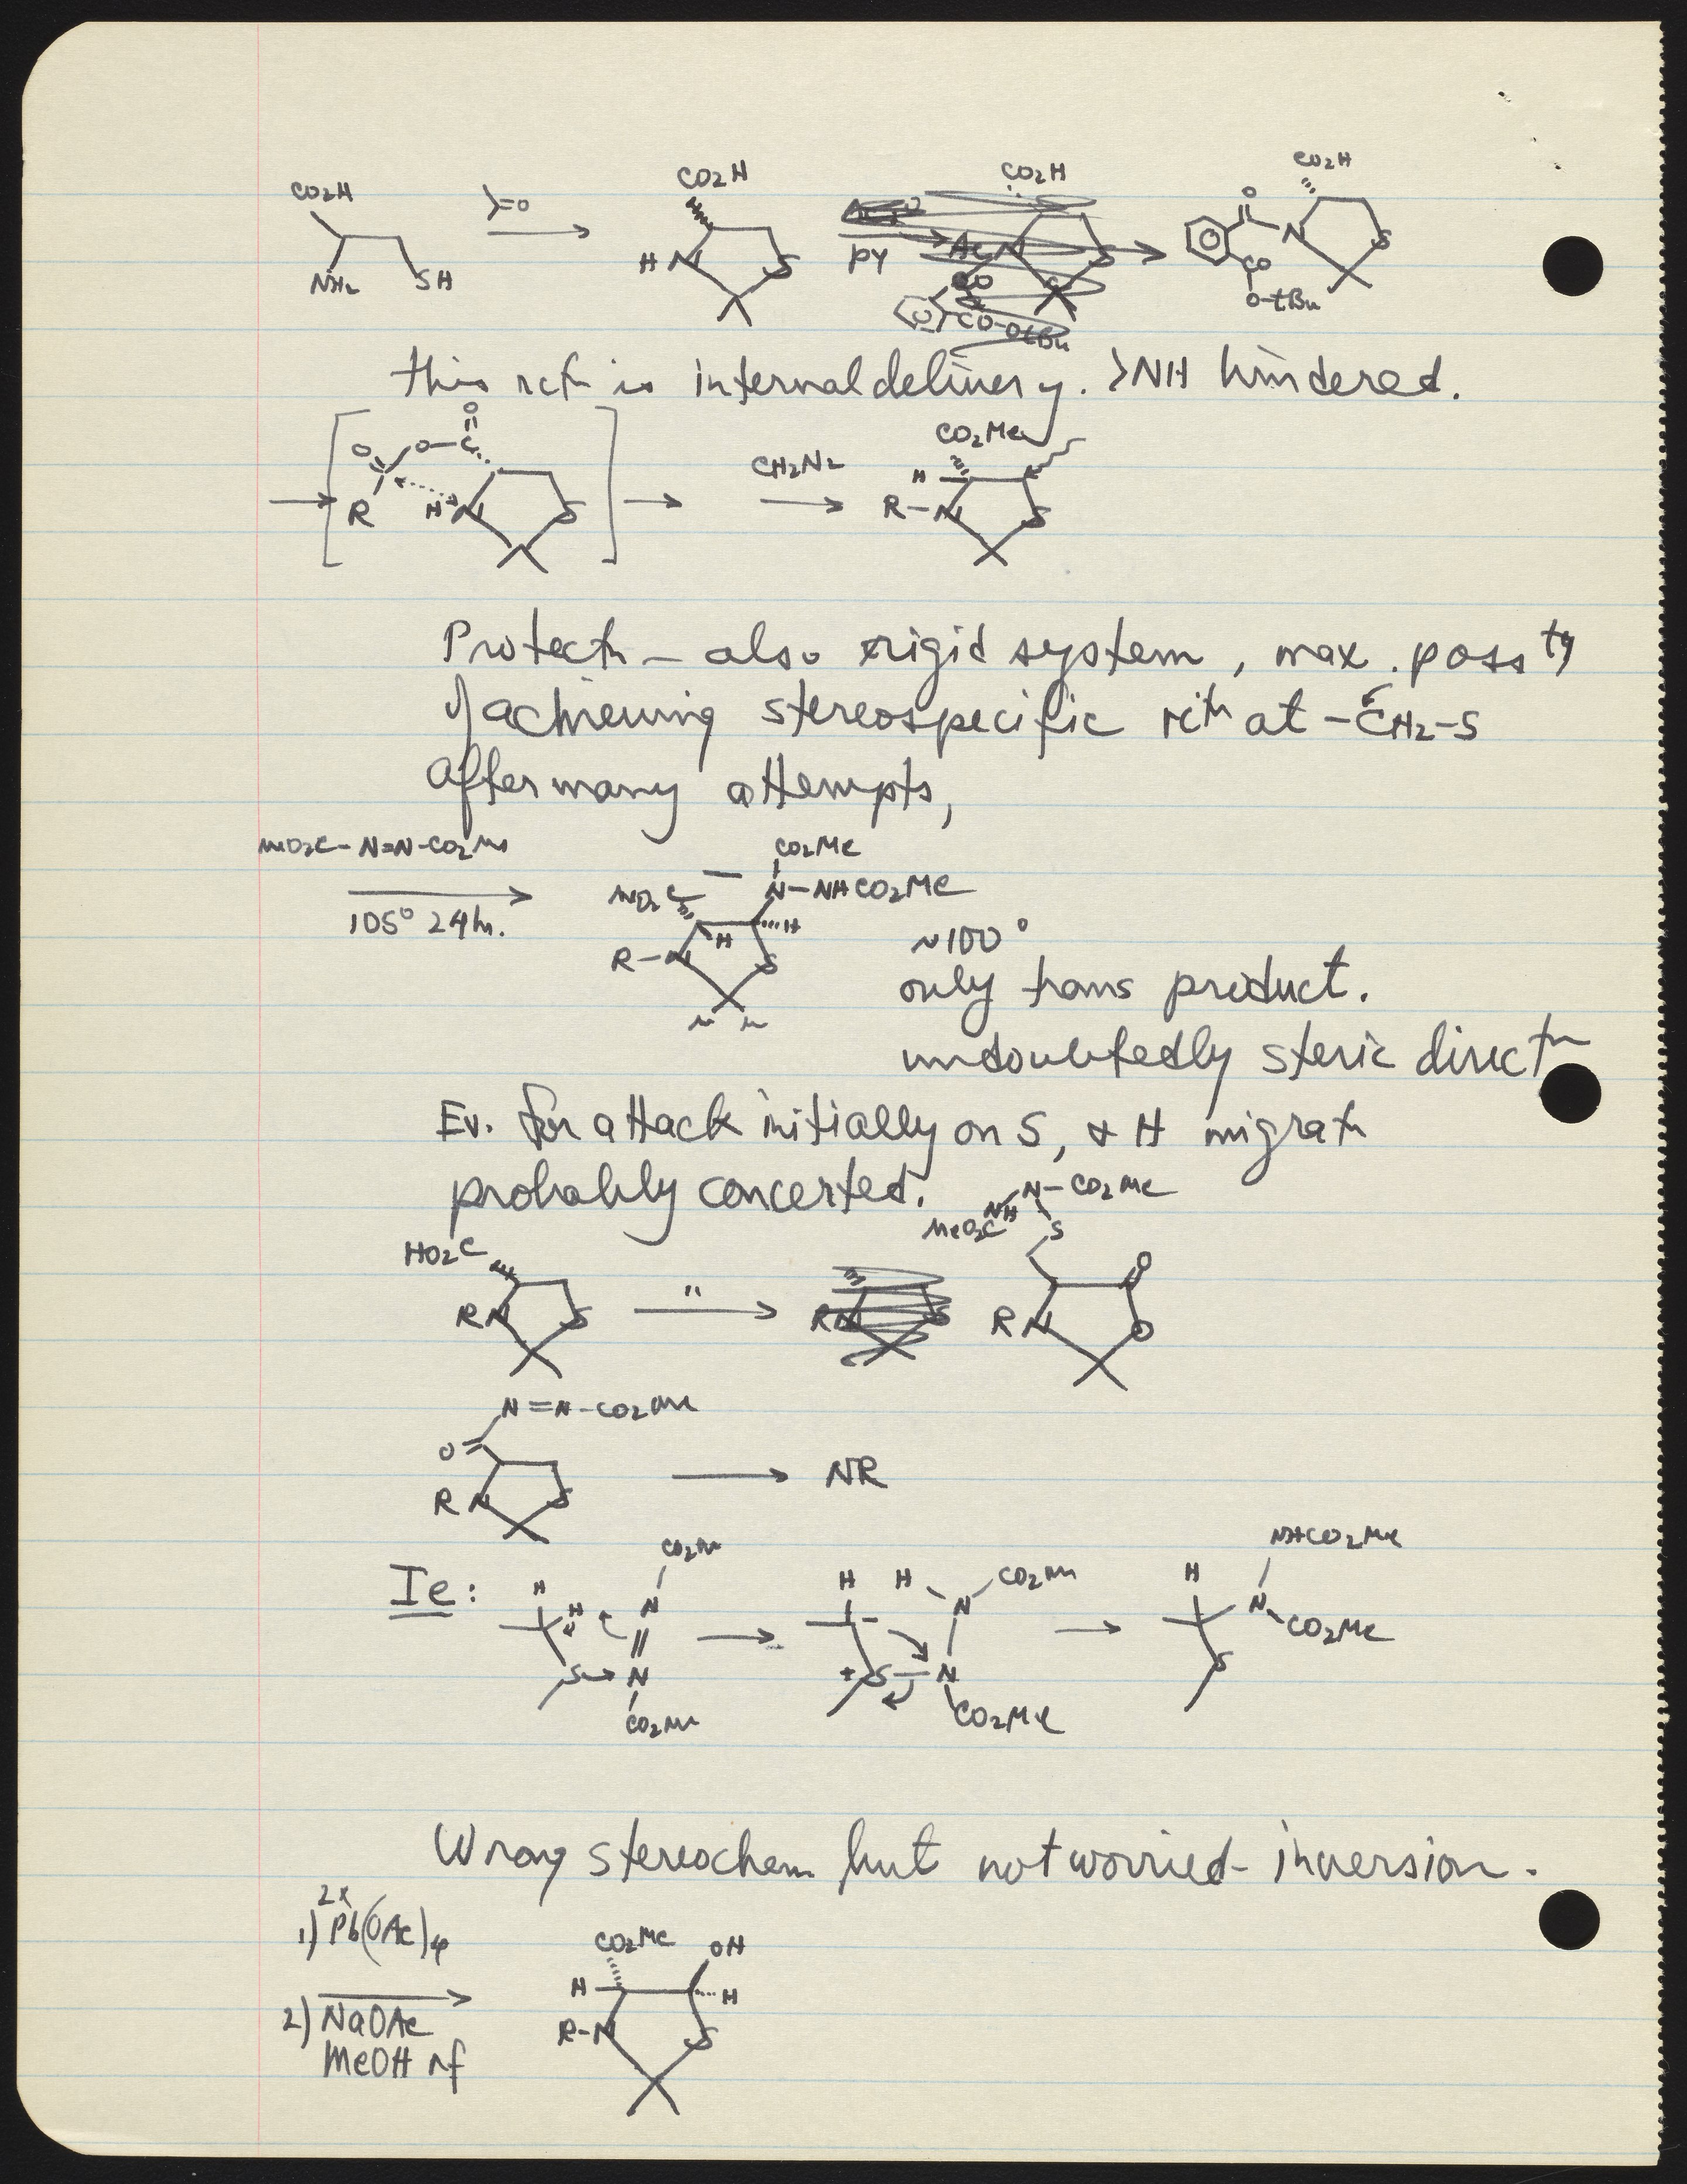 CO2H
NH2
SH
=O
CO2H
H N
S
PY
CO2H
Ac N
S
CO
CO-OtBu
CO2H
O
N
S
CO
O-tBu
this rctn is internal delivery. >NH hindered.
O
O O-C
R H N
S
CH2N2
CO2Me
H
R-N
S
Protectn - also rigid system, max. possty
of achieving stereospecific rctn at -CH2-S
After many attempts,
MeO2C-N=N-CO2Me
105° 24hr.
CO2Me
MeO2C
N-NHCO2Me
H
H
R-N
S
~100°
only trans product.
undoubtedly steric directn
Ev. for attack initially on S, & H migratn
probably concerted.
N-CO2Me
NH
MeO2C
S
HO2C
RN
S
"
RN
S
O
RN
O
N=N-CO2Me
O=
R N
S
NR
Ie:
CO2Me
H
H
N
S N
CO2Me
H H
N
CO2Me
- 
+S-N
CO2Me
NHCO2Me
H
N
CO2Me
S
Wrong stereochem but not worried - inversion.
2x
1) Pb(OAc)4
2) NaOAc
MeOH rf
CO2Me
OH
H
H
R-N
S